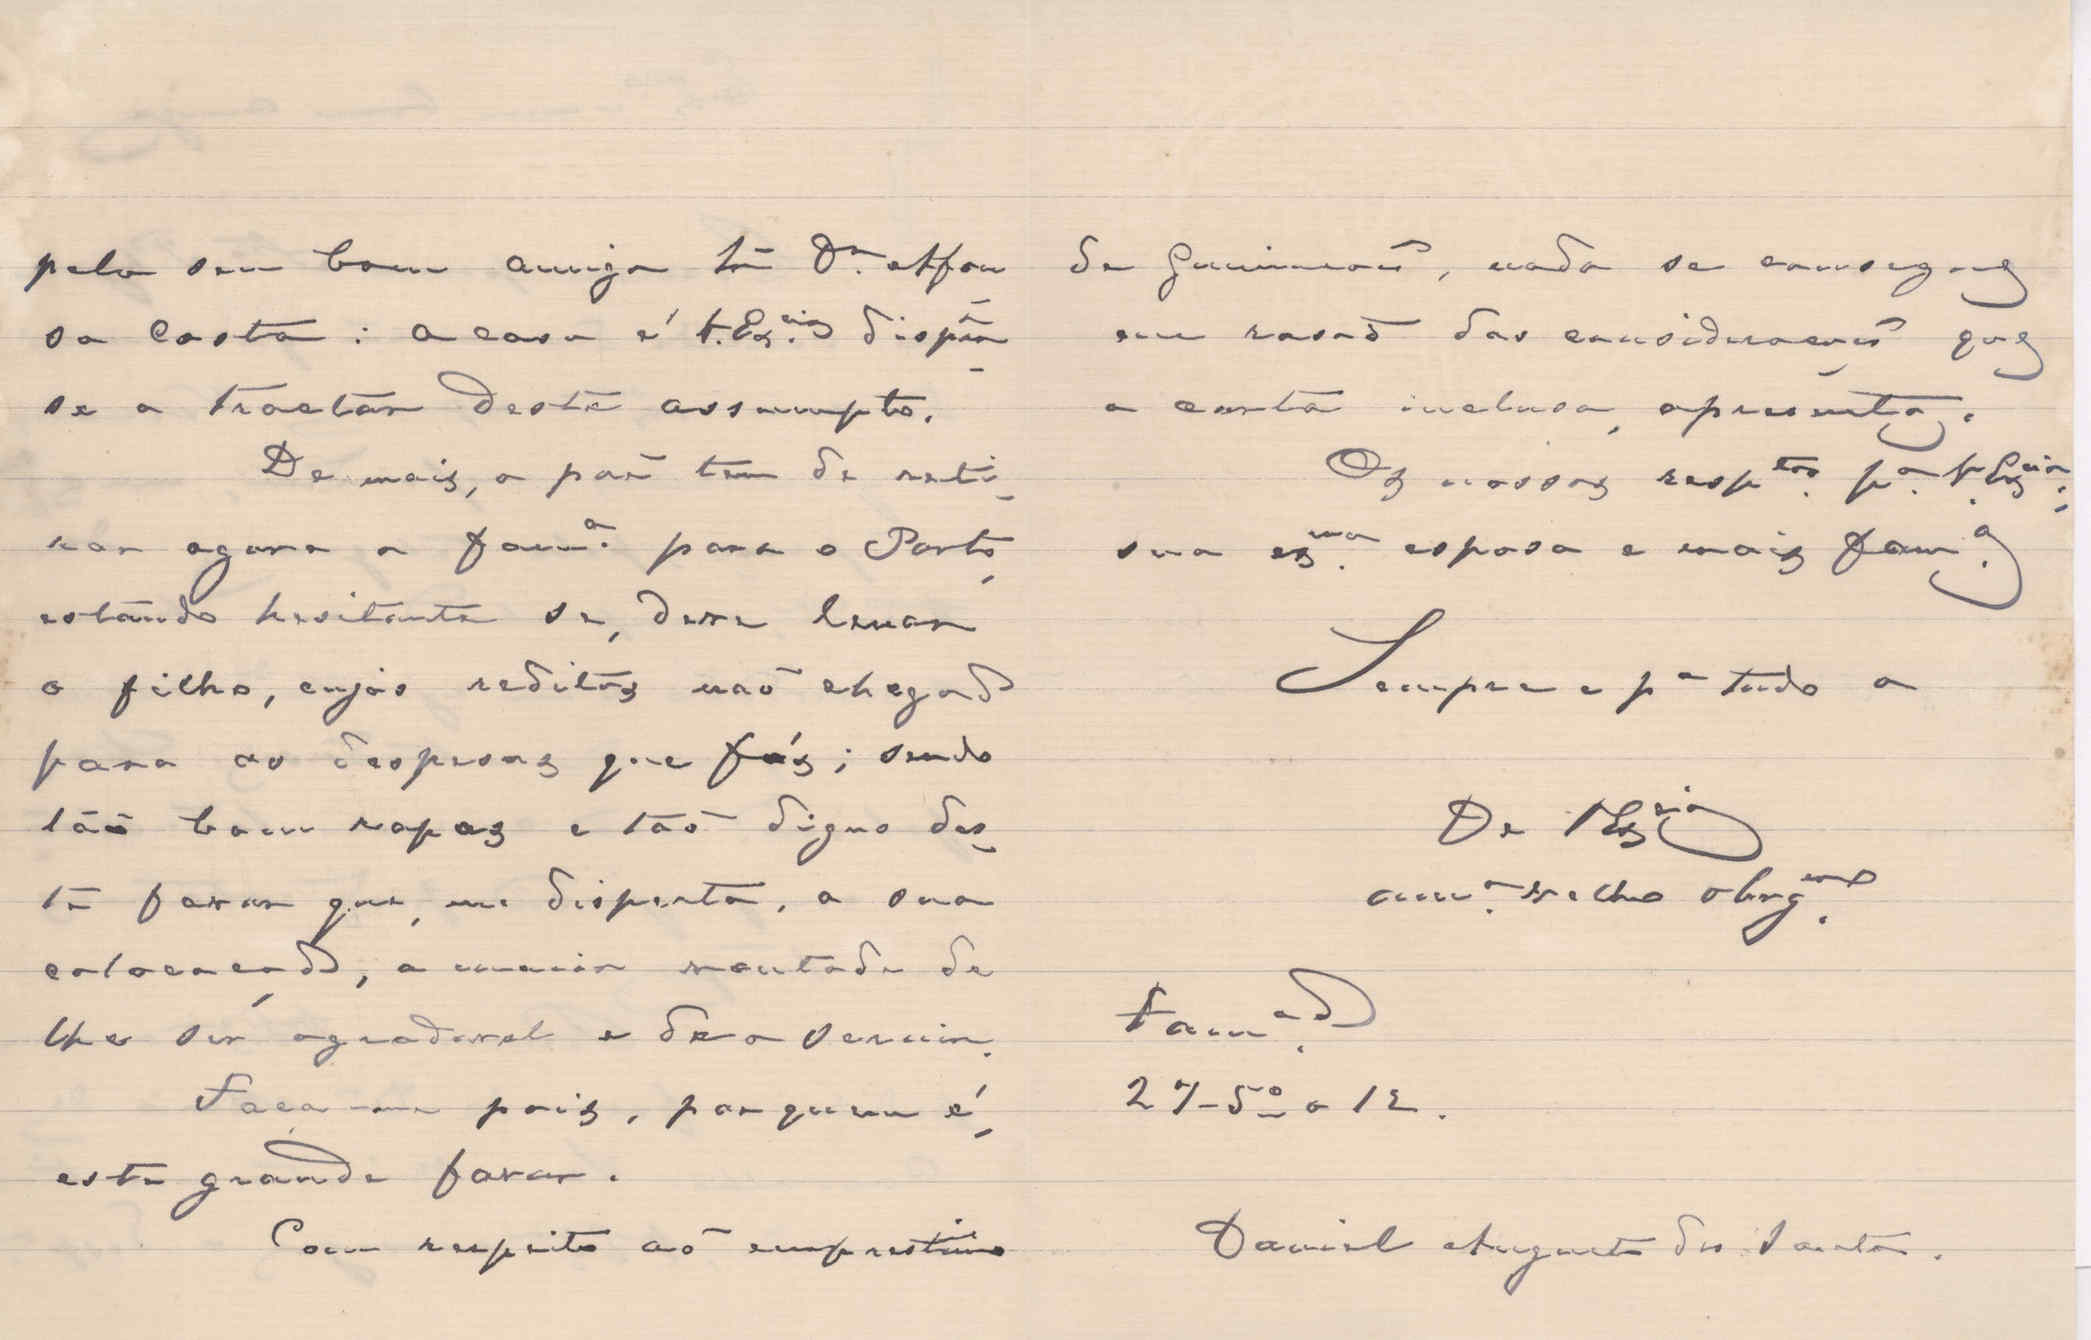 pelo seu bom amigo Snr Dr. Affon
so Costa: a casa é V. Ex.cia dispôr-
se a tractar deste assumpto.
De mais, o pae tem de reti-
rar agora a fam.a para o Porto,
estando hesitante se, deve levar
o filho, cujos reditos não chegão
para as despesas que fás; sendo
tão bom rapaz e tão digno des-
te favor que, me disperta, a sua
colocação, a maior vontade de
lhe ser agradavel e de o servir.
Faça-me pois, por quem é,
este grande favor.
Com respeito aó emprestimo
de Guimarães, nada se consegue
em rasão das considerações que
a carta inclusa, apresenta.
Os nossos resp.tos p.a V. Ex.cia,
sua ex.ma esposa e mais fam.a
Sempre e p.a tudo o
De V Ex.cia
am.o velho obrg.mo
Fam.ão
27-5º-12.
Daniel Augusto dos Santos.